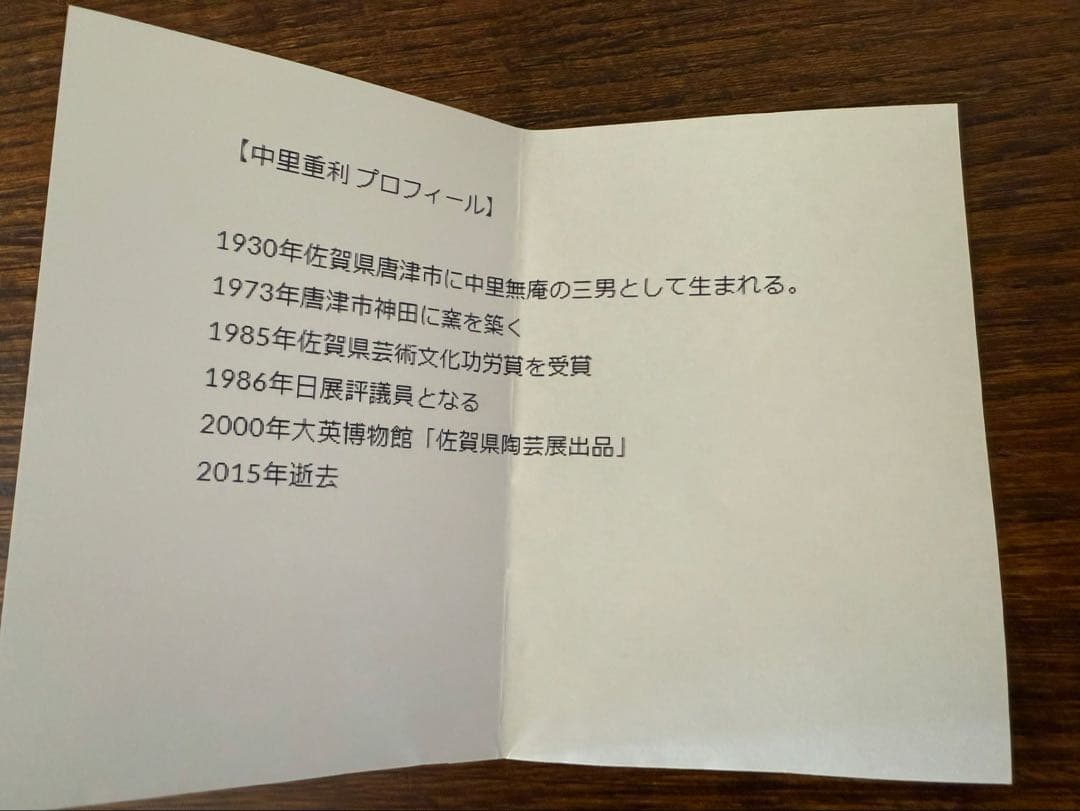 【中里重利 プロフィール】
1930年佐賀県唐津市に中里無庵の三男として生まれる。
1973年唐津市神田に窯を築く
1985年佐賀県芸術文化功労賞を受賞
1986年日展評議員となる
2000年大英博物館「佐賀県陶芸展出品」
2015年逝去